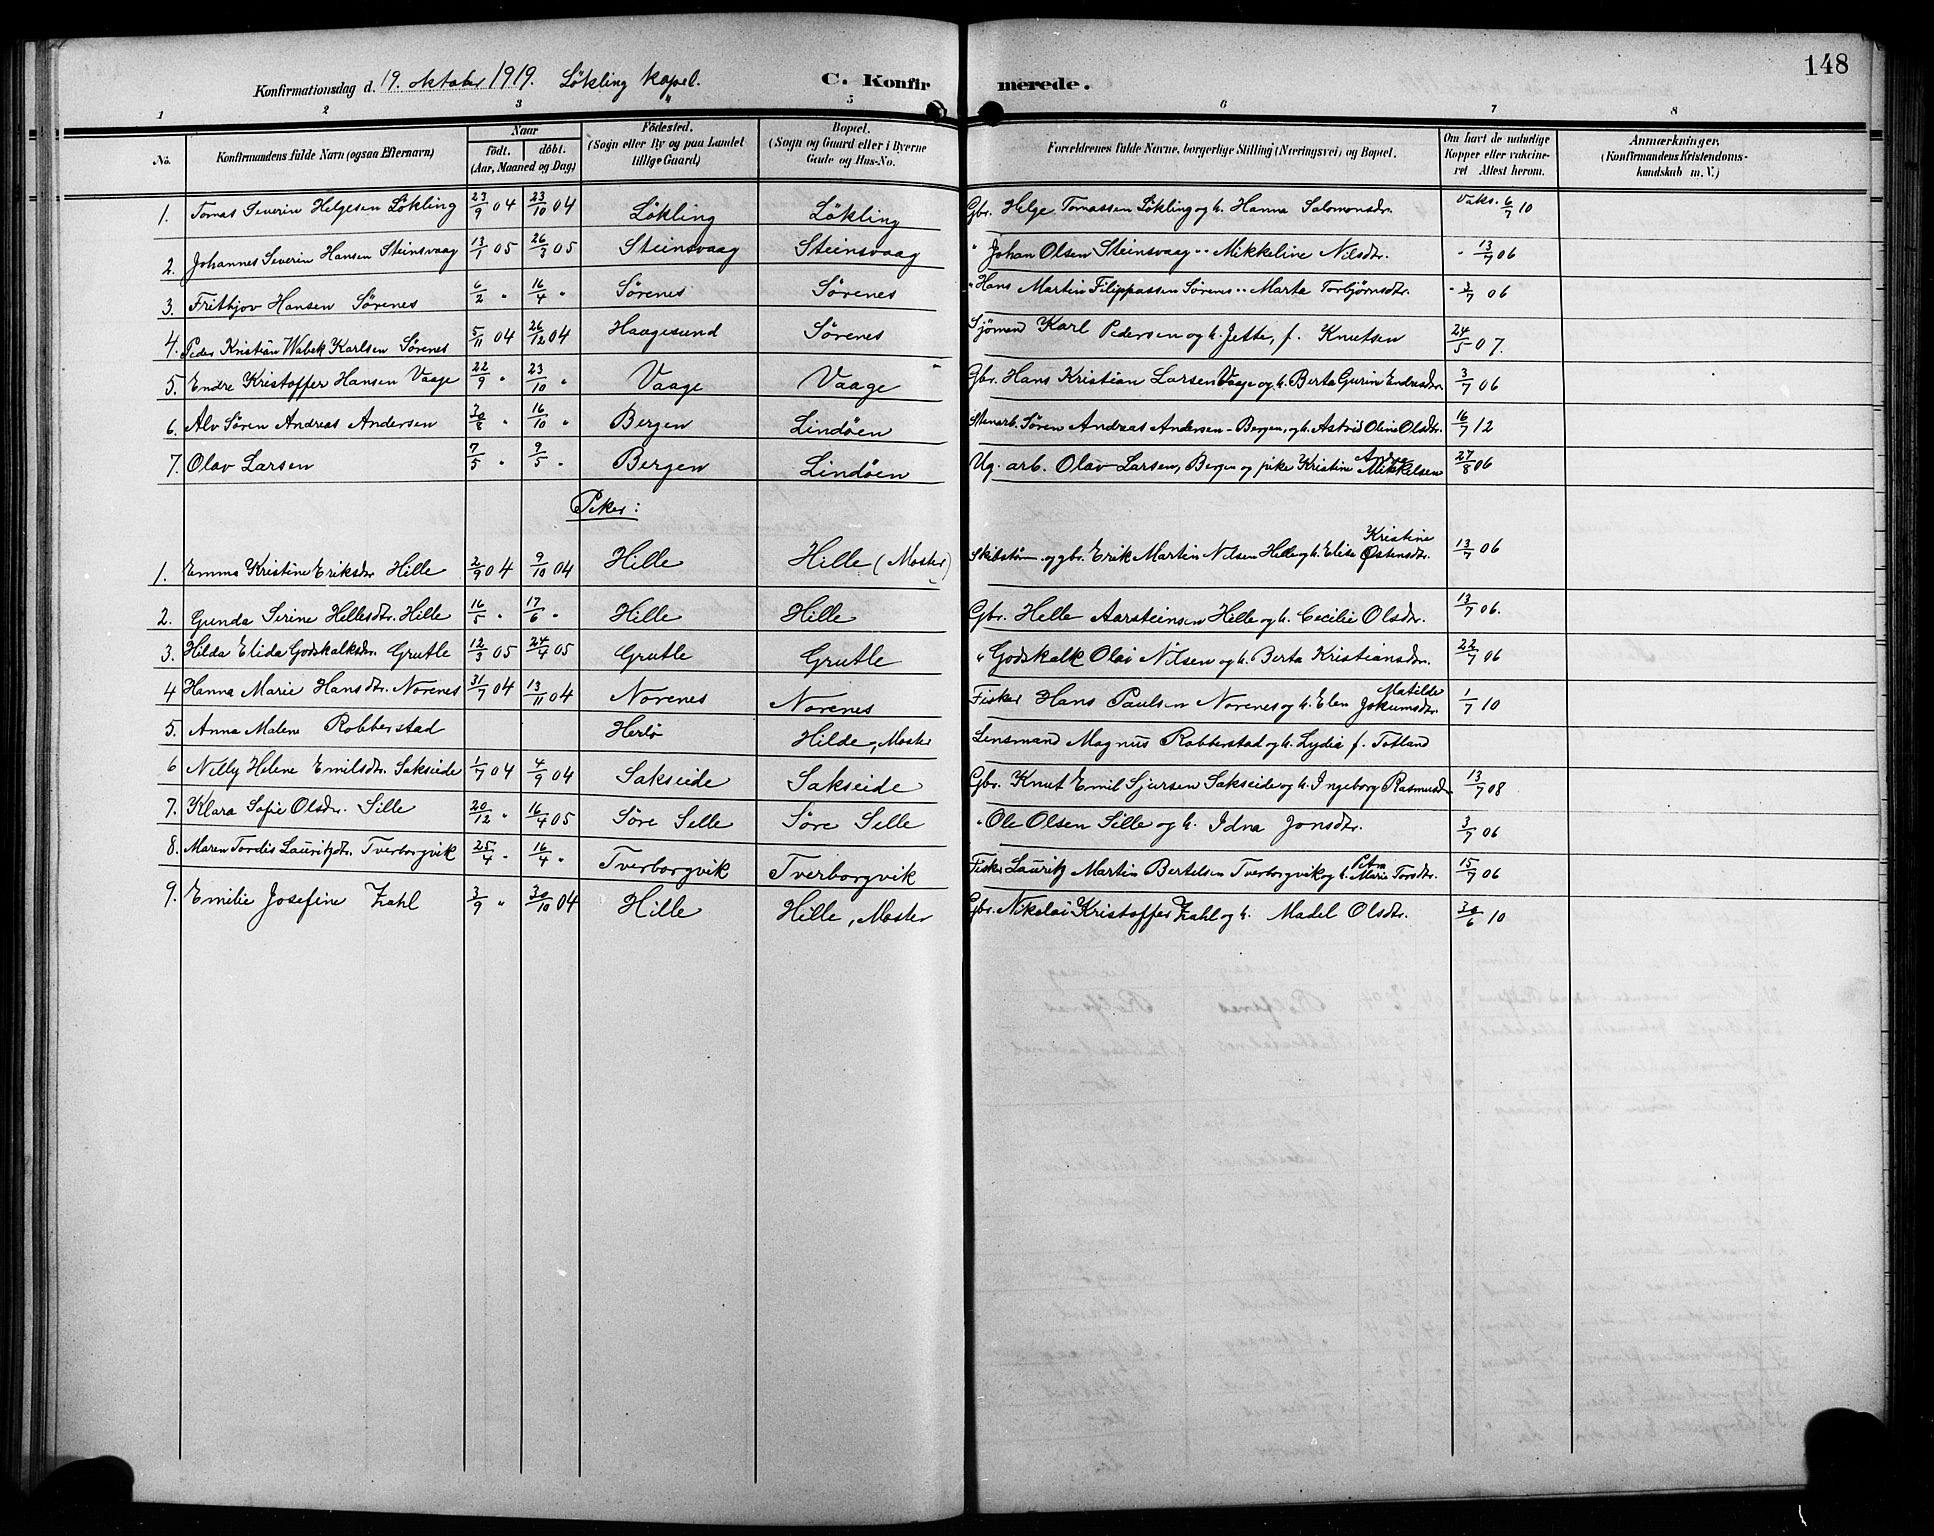 148
Konfirmationsdag d. 19. oktober 1919. Løkling kapel. C. Konfirmerede.
1 2 3 5 6 7 8
No. Konfirmandens fulde Navn (ogsaa Efternavn) Naar födt. döbt. (Aar, Maaned og Dag) Födested. (Sogn eller By og paa Landet tillige Gaard) Bopæl. (Sogn og Gaard eller i Byerne Gade og Hus-No. Forældrenes fulde Navne, borgerlige Stilling (Næringsvei) og Bopæl. Om havt de naturlige Kopper eller vakcineret Attest herom. Anmærkninger. (Konfirmandens Kristendomskundskab m. V.)
1. Tomas Severin Helgesen Løkling 23/9 04 23/10 04 Løkling Løkling Gbr. Helge Tomassen Løkling og h. Hanna Salomonsdr. Vaks. 6/7 10
2. Johannes Severin Hansen Steinsvaag 13/1 05 26/3 05 Steinsvaag Steinsvaag " Johan Olsen Steinsvaag " " Mikkeline Nilsdtr. " 13/7 06
3. Frithjov Hansen Sørenes 6/2 " 16/4 " Sørenes Sørenes " Hans Martin Filippassen Sørenes " " Marta Torbjørnsdtr. " 3/7 06
4. Peder Kristian Wabek Karlsen Sørenes 5/11 04 26/12 04 Haugesund Sørenes Sjømand Karl Pedersen og h. Jette, f. Knutsen 24/5 07.
5. Endre Kristoffer Hansen Vaage 22/9 " 23/10 " Vaage Vaage Gbr. Hans Kristian Larsen Vaage og h. Berta Gurin Endresdtr. 3/7 06
6. Alv Søren Andreas Andersen 30/8 " 16/10 " Bergen Lindøen Stenarb. Søren Andreas Andersen - Bergen, og h. Astrid Oline Olsdtr. 16/7 12
7. Olav Larsen 7/5 " 9/5 " Bergen Lindøen Ug. arb. Olav Larsen, Bergen og pike Kristine Andrea Mikkelsen 27/8 06
Piker:
1. Emma Kristine Eriksdtr Hille 2/9 04 9/10 04 Hille Hille (Moster) Skibstøm. og gbr. Erik Martin Nilsen Hille og h. Elise Kristine Østensdtr. 13/7 06
2. Gunda Serine Hellesdtr. Hille 16/5 " 17/6 " Hille Hille Gbr. Helle Aarsteinsen Hille og h. Cecilie Olsdtr. 13/7 06.
3. Hilda Elida Godskalksdr. Grutle 12/3 05 24/4 05 Grutle Grutle " Godskalk Olai Nilsen og h. Berta Kristiansdtr. 22/7 06
4 Hanna Marie Hansdtr. Norenes 31/7 04 13/11 04 Norenes Norenes Fisker Hans Paulsen Norenes og h. Elen Matilde Jokumsdtr. 1/7 10
5. Anna Malene Robberstad Herlø Hilde, Moster Lensmand Magnus Robberstad og h. Lydia f. Totland
6 Nilly Helene Emilsdtr. Sakseide 1/7 04 4/9 04 Sakseide Sakseide Gbr. Knut Emil Sjursen Sakseide og h. Ingeborg Rasmusdtr 13/7 08
7. Klara Sofie Olsdtr. Sille 20/12 " 16/4 05 Søre Selle Søre Selle " Ole Olsen Sille og h. Idna Jonsdtr. 3/7 06
8. Maren Tordis Lauritzdtr. Tverborgvik 25/4 " 16/4 " Tverborgvik Tverborgvik Fisker Lauritz Martin Bertelsen Tverborgvik og h. Petra Marie Torsdtr. 15/7 06
9. Emilie Josefine Zahl 3/9 " 30/10 04 Hille Hille, Moster Gbr. Nikolai Kristoffer Zahl og h. Madel Olsdtr. 30/6 10